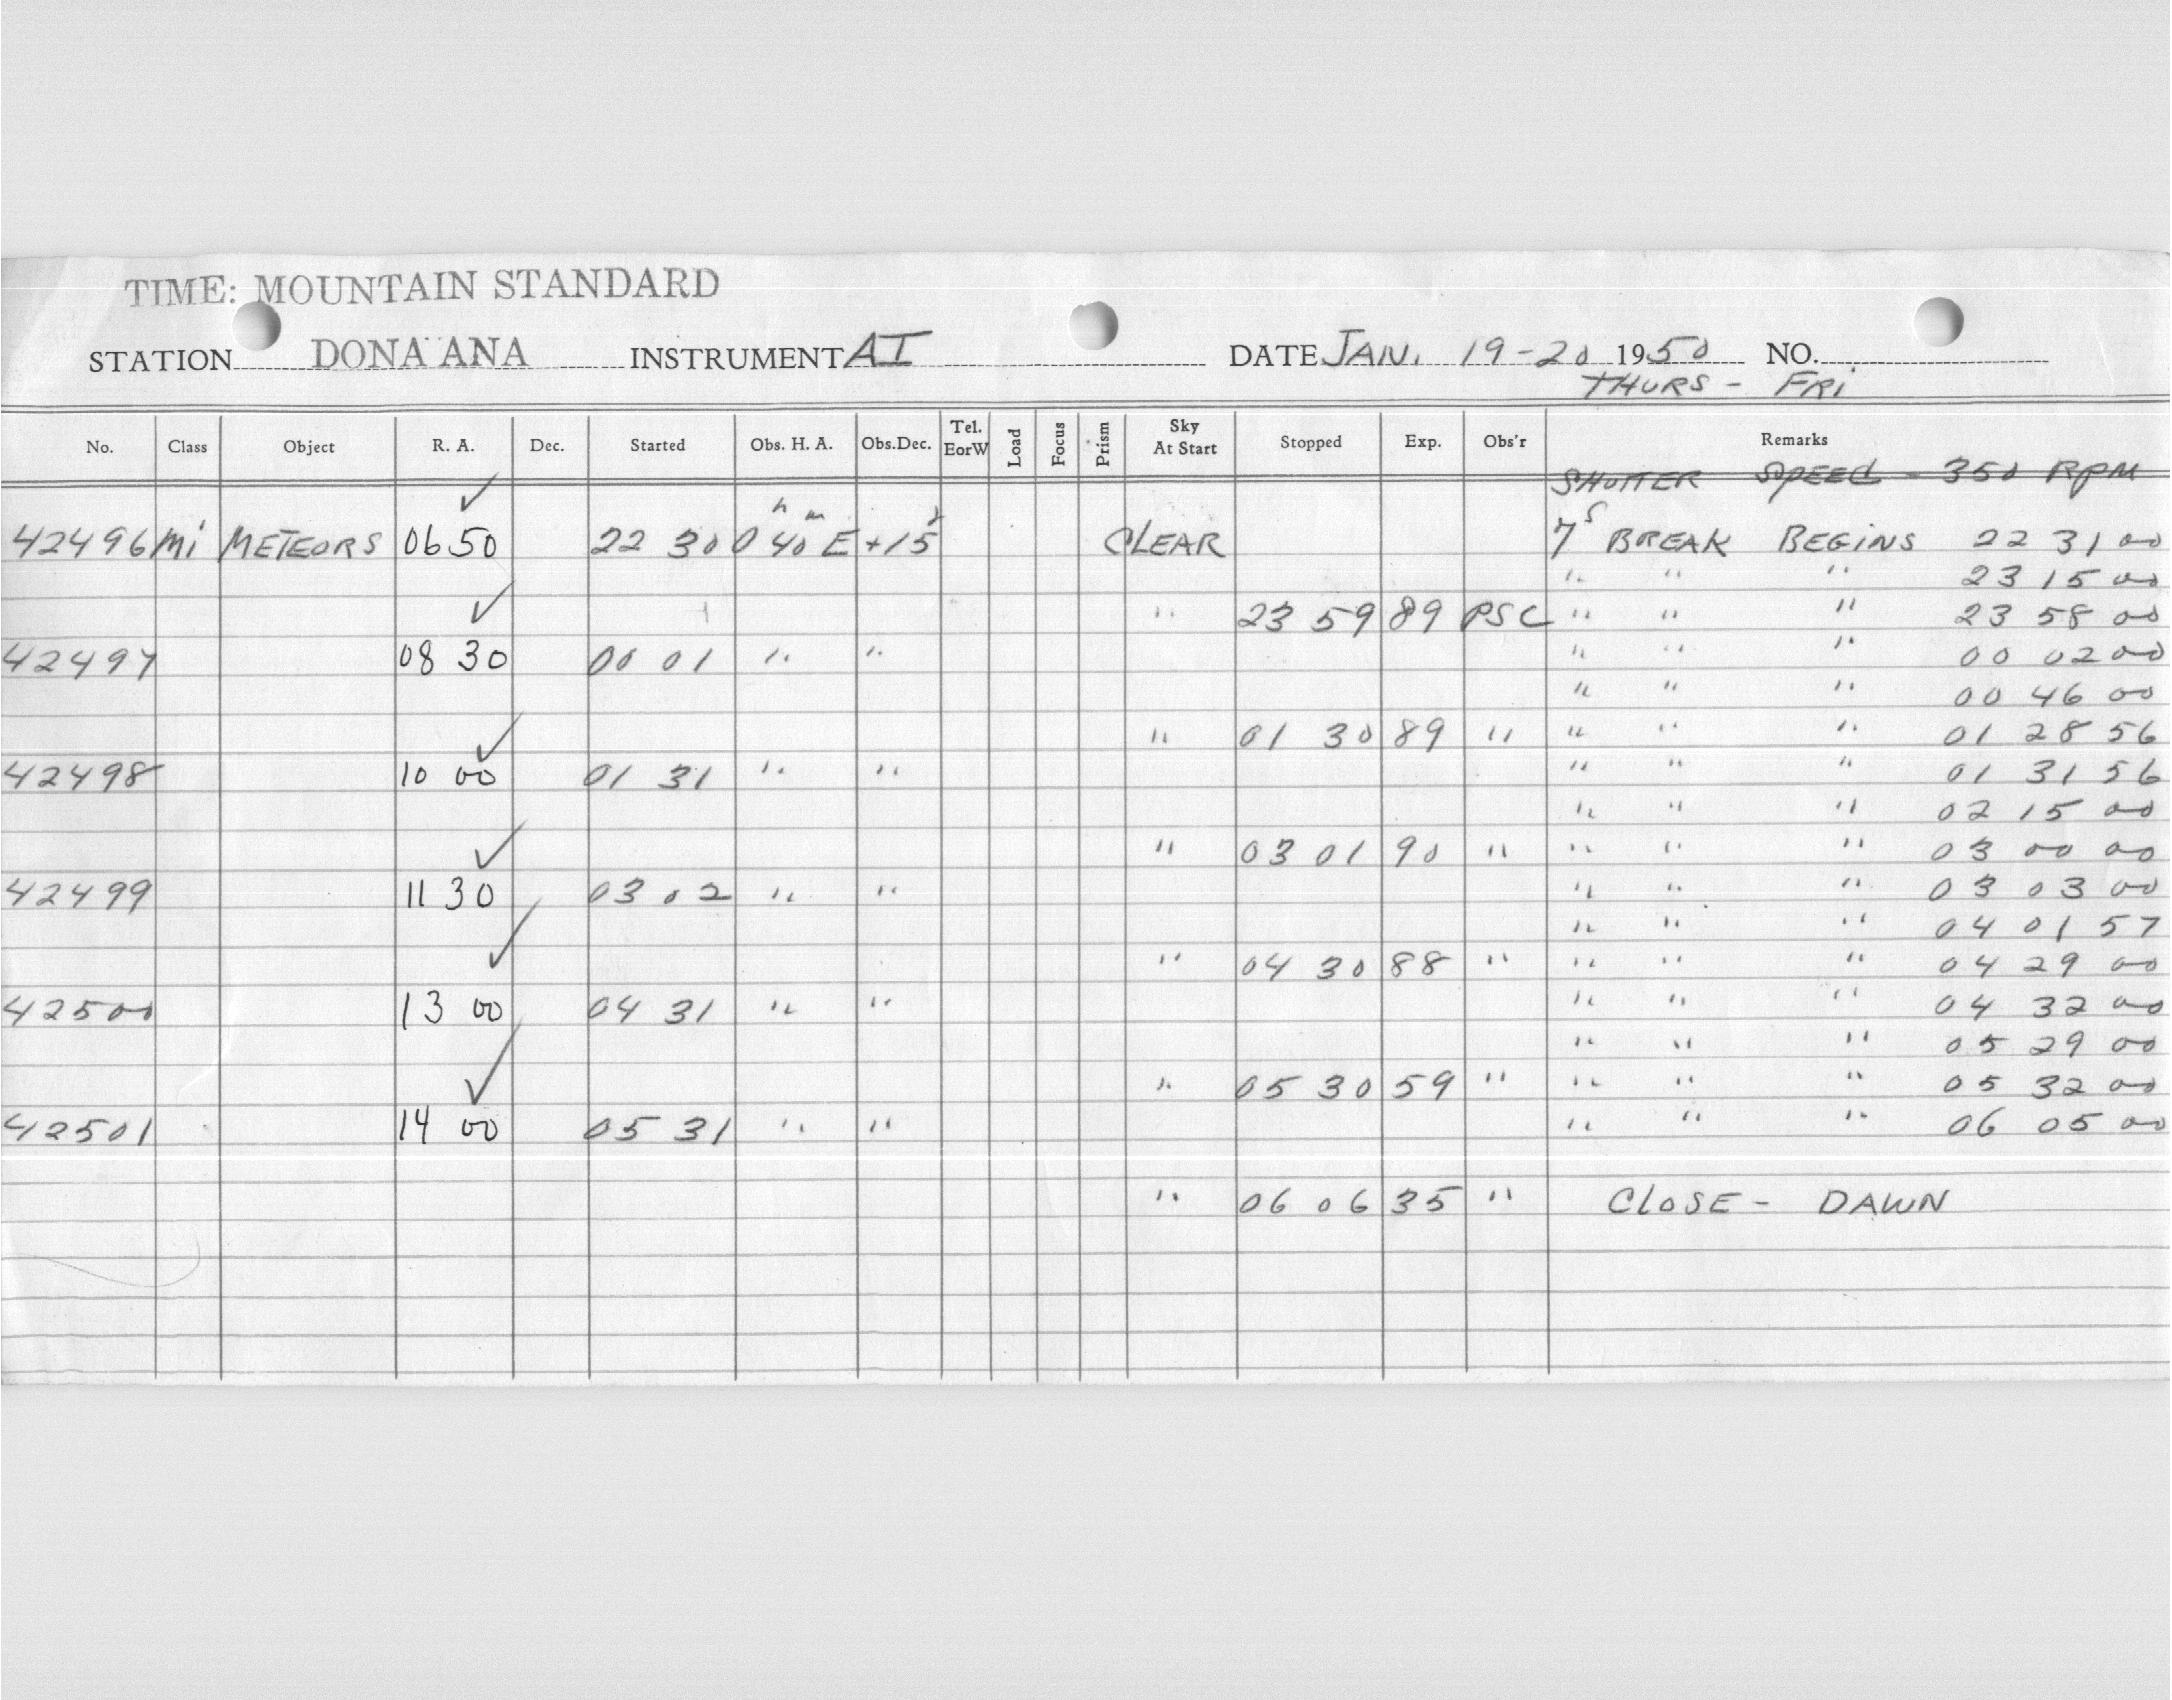 TIME: MOUNTAIN STANDARD
STATION DONA ANA INSTRUMENT AI DATE JAN. 19-20 1950 NO.
THURS - FRI
No. Class Object R. A. Dec. Started Obs. H. A. Obs.Dec. Tel. EorW Load Focus Prism Sky At Start Stopped Exp. Obs'r Remarks
SHUTTER SPEED - 350 RPM
42496 Mi METEORS 06 50 ✓ 22 30 0h 40m E +15 CLEAR 7s BREAK BEGINS 22 31 00
" " " 23 15 00
" 23 59 89 PSC " " " 23 58 00
42497 08 30 ✓ 00 01 " " " " " 00 02 00
" " " 00 46 00
" 01 30 89 " " " " 01 28 56
42498 10 00 ✓ 01 31 " " " " " 01 31 56
" " " 02 15 00
" 03 01 90 " " " " 03 00 00
42499 11 30 ✓ 03 02 " " " " " 03 03 00
" " " 04 01 57
" 04 30 88 " " " " 04 29 00
42500 13 00 ✓ 04 31 " " " " " 04 32 00
" " " 05 29 00
" 05 30 59 " " " " 05 32 00
42501 14 00 ✓ 05 31 " " " " " 06 05 00
" 06 06 35 " CLOSE - DAWN